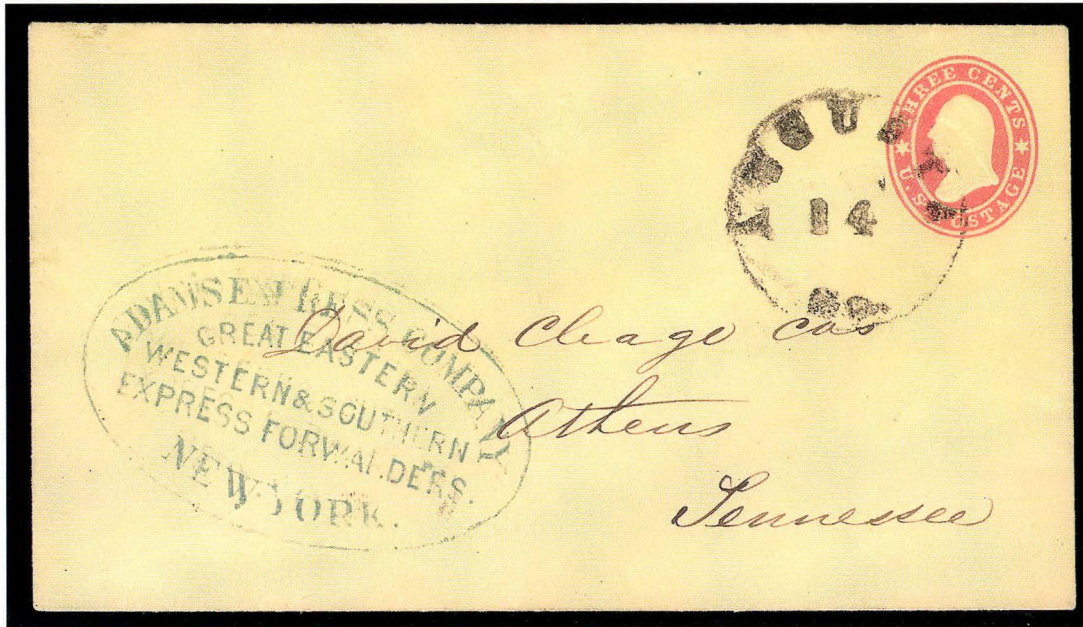 THREE CENTS
U.S. POSTAGE
AUGUSTA
14
ADAMS EXPRESS COMPANY
GREAT EASTERN
WESTERN & SOUTHERN
EXPRESS FORWARDERS.
NEW-YORK.
David Cleage
Athens
Tennessee